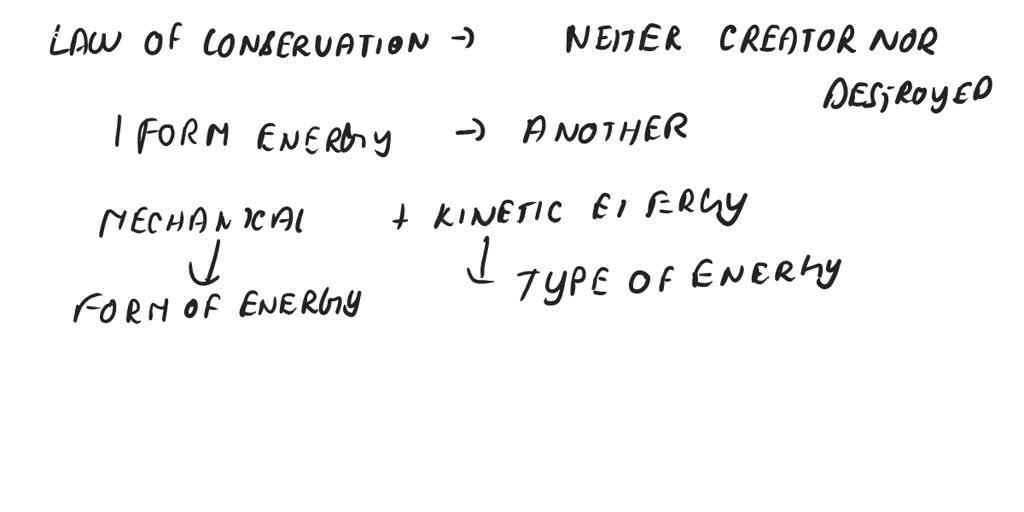 LAW OF CONSERVATION → NEITER CREATOR NOR
DESTROYED
1 FORM ENERGY → ANOTHER
MECHANICAL + KINETIC ENERGY
FORM OF ENERGY
TYPE OF ENERGY